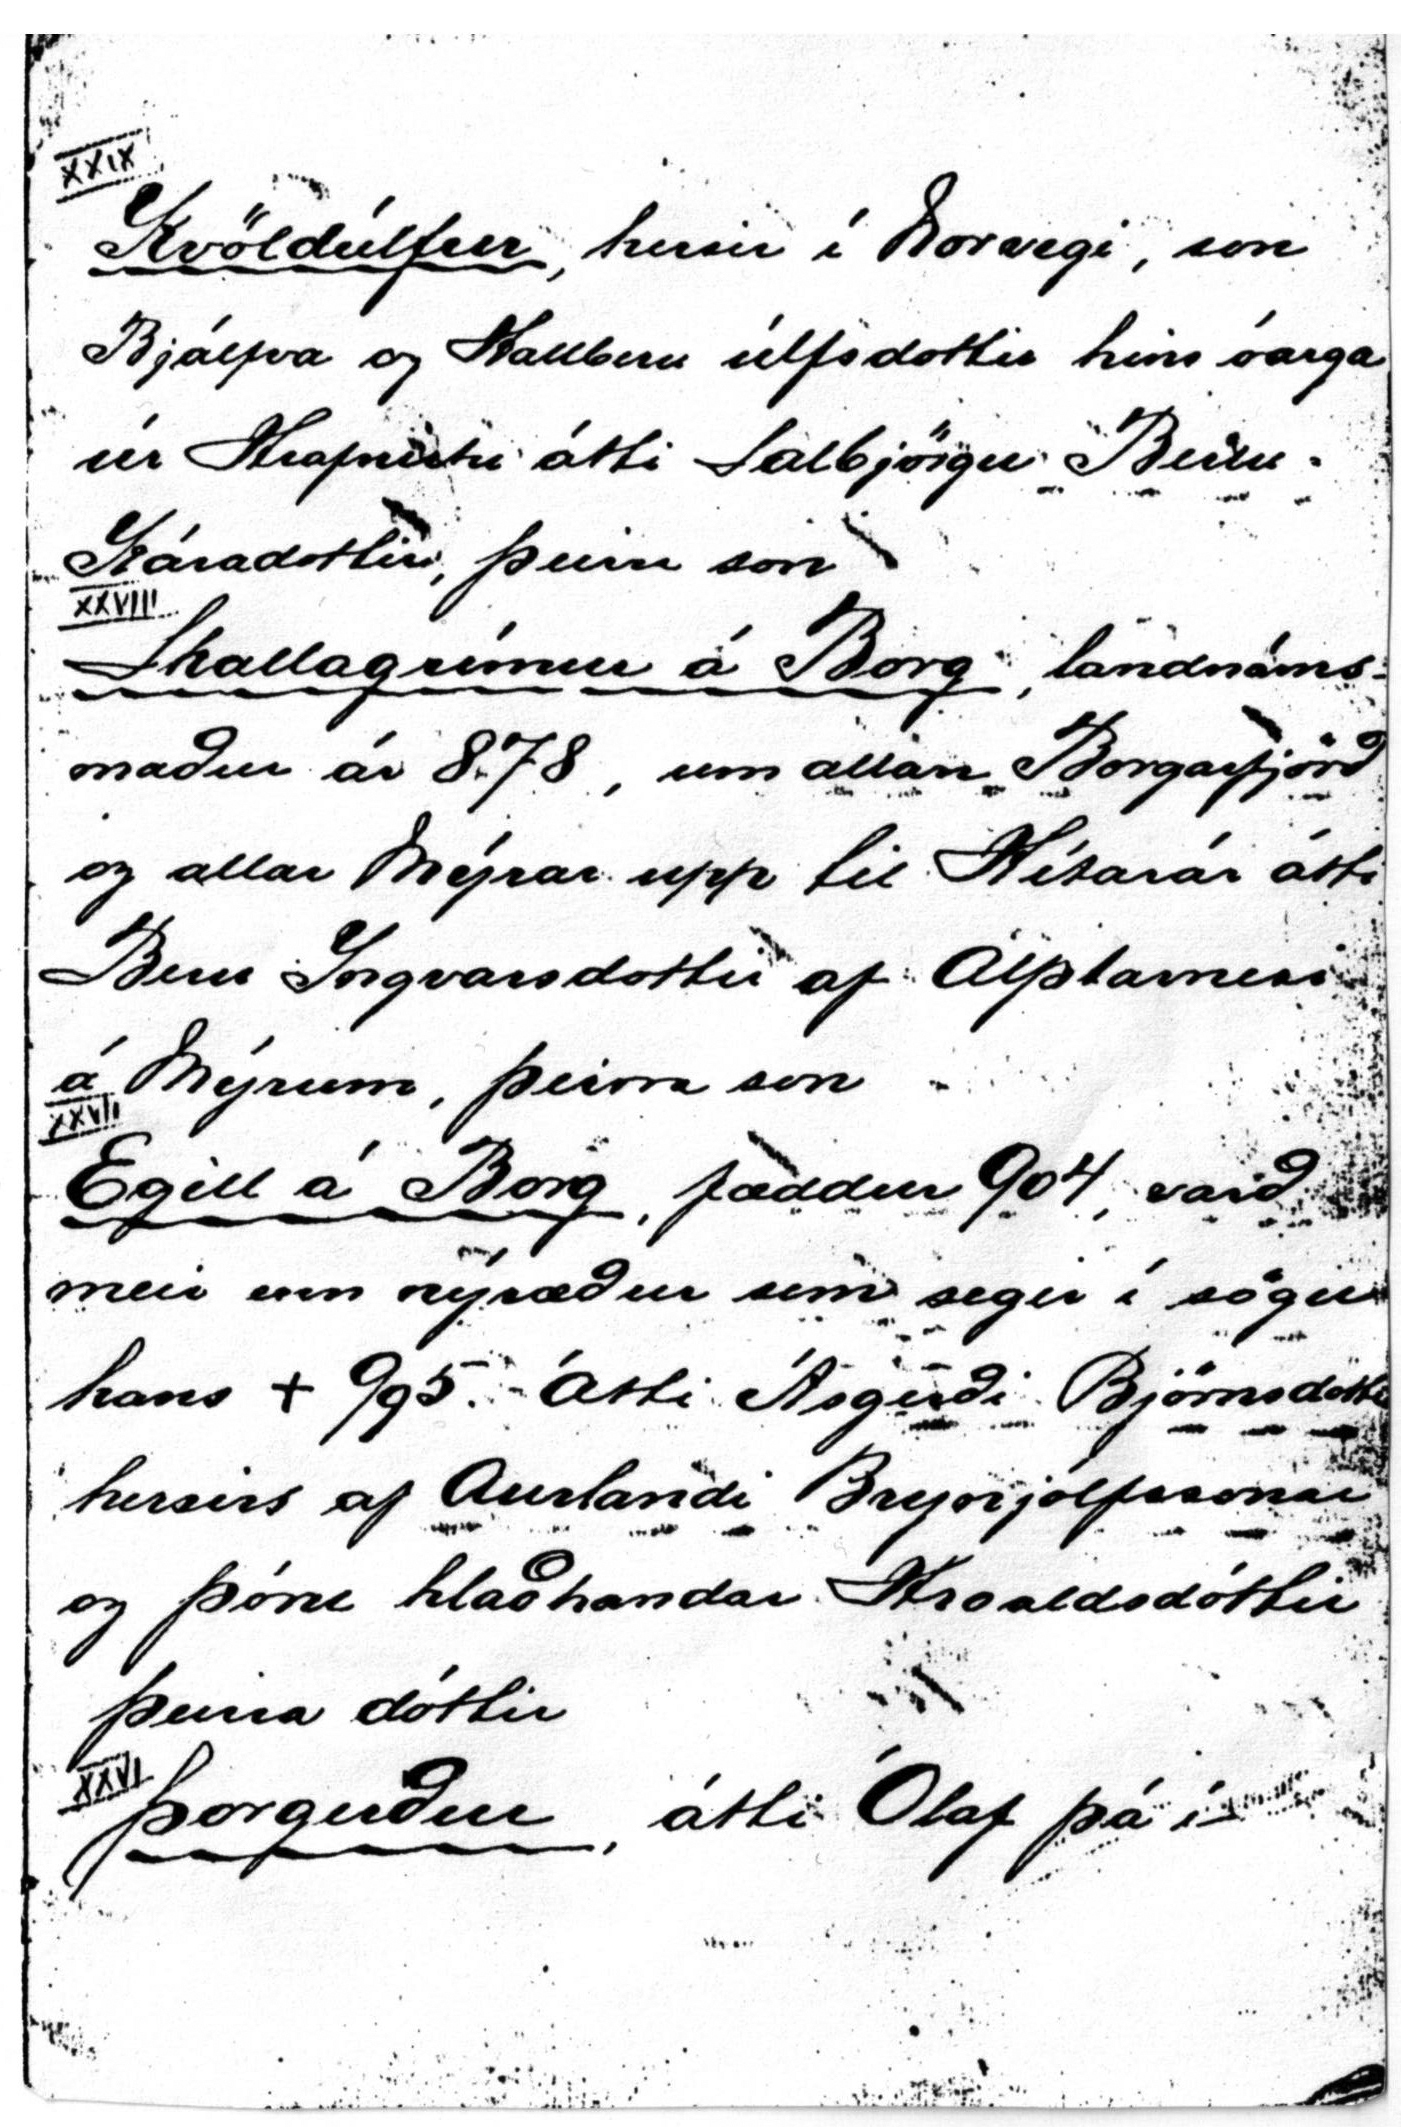 XXIX
Kvöldúlfur, hersir í Norvegi, son
Bjálfva og Hallberu úlfsdottir hins óarga
úr Hrafnistu átti Salbjörgu Beru-
Káradottir, þeirra son
XXVIII
Skallagrímur á Borg, landnáms-
maður ár 878, um allan Borgarfjörð
og allar Mýrar upp til Hítarár átti
Beru Yngvarsdottir af Alptarnesi
á Mýrum, þeirra son
XXVII
Egill á Borg, fæddur 904, varð
meir enn nýræður sem segir í sögu
hans + 995. Átti Ásgerði Björnsdottir
hersirs af Aurlandi Brynjolfssonar
og Þóru hlaðhandar Hroaldsdóttir
þeirra dóttir
XXVI
Þorgerður, átti Ólaf pá í